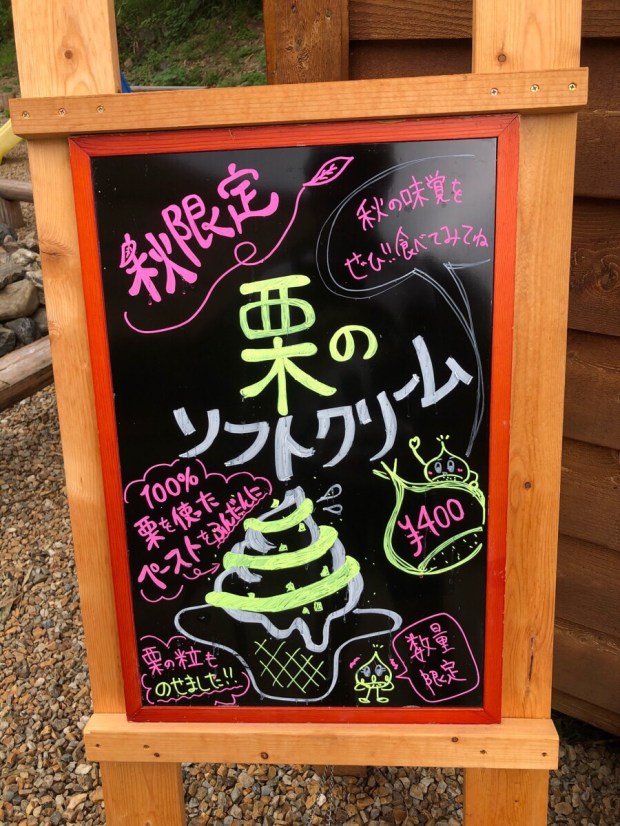 秋限定
秋の味覚を
ぜひ!!食べてみてね
栗の
ソフトクリーム
100%
栗を使った
ペーストをふんだんに
¥400
栗の粒も
のせました!!
数量
限定